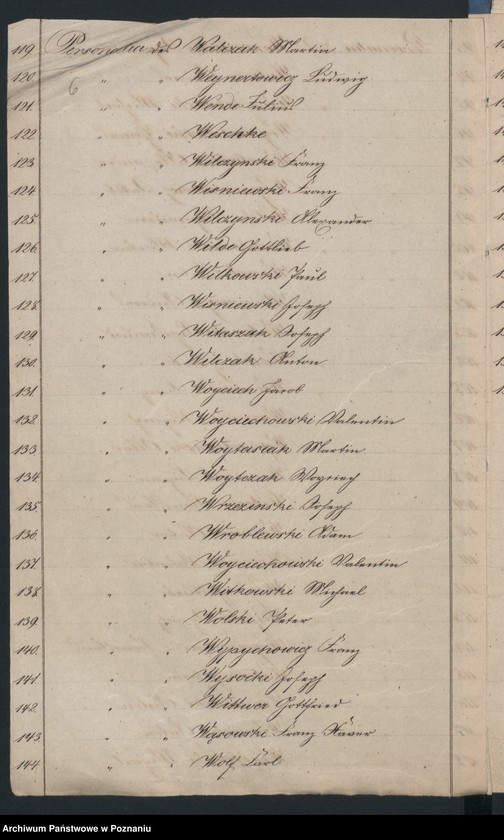 119 Personalia des Walczak Martin
120 " " Weynertowicz Ludwig
121 " " Wende Julius
122 " " Weschke
123 " " Wilczynski Franz
124 " " Wisniewski Franz
125 " " Wilczynski Alexander
126 " " Wilde Gottlieb
127 " " Witkowski Paul
128 " " Wisniewski Joseph
129 " " Witaszak Joseph
130 " " Wilczak Anton
131 " " Woyciech Jacob
132 " " Woyciechowski Valentin
133 " " Martin
134 " " Woytczak
135 " " Wrzezinski Joseph
136 " " Wroblewski Adam
137 " " Woyciechowski Valentin
138 " " Witkowski Michael
139 " " Wolski Peter
140 " " Wypychowicz Franz
141 " " Wysocki Joseph
142 " " Wittwer Gottfried
143 " " Wąsowski Franz Xaver
144 " " Wolf Carl
6
Archiwum Państwowe w Poznaniu
szukajwarchiwach.gov.pl